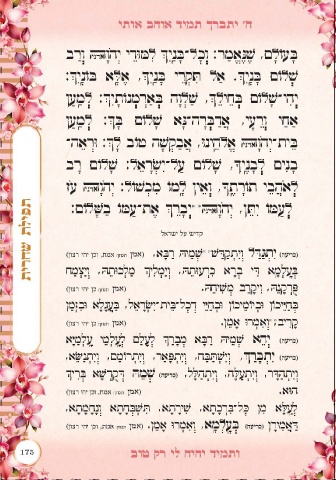 ה' יתברך תמיד אוהב אותי
בָּעוֹלָם, שֶׁנֶּאֱמַר: וְכָל־בָּנַיִךְ לִמּוּדֵי יְהֹוָה וְרַב
שְׁלוֹם בָּנָיִךְ. אַל תִּקְרֵי בָּנָיִךְ, אֶלָּא בּוֹנָיִךְ:
יְהִי־שָׁלוֹם בְּחֵילֵךְ, שַׁלְוָה בְּאַרְמְנוֹתָיִךְ: לְמַעַן
אַחַי וְרֵעָי, אֲדַבְּרָה־נָּא שָׁלוֹם בָּךְ: לְמַעַן
בֵּית־יְהֹוָה אֱלֹהֵינוּ, אֲבַקְשָׁה טוֹב לָךְ: וּרְאֵה־
בָנִים לְבָנֶיךָ, שָׁלוֹם עַל־יִשְׂרָאֵל: שָׁלוֹם רָב
לְאֹהֲבֵי תוֹרָתֶךָ, וְאֵין לָמוֹ מִכְשׁוֹל: יְהֹוָה עֹז
לְעַמּוֹ יִתֵּן, יְהֹוָה יְבָרֵךְ אֶת־עַמּוֹ בַשָּׁלוֹם:
קדיש על ישראל
יִתְגַּדַּל וְיִתְקַדַּשׁ שְׁמֵהּ רַבָּא, (אמן
בְּעָלְמָא דִּי בְרָא כִרְעוּתֵהּ, וְיַמְלִיךְ מַלְכוּתֵהּ, וְיַצְמַח
פֻּרְקָנֵהּ, וִיקָרֵב מְשִׁיחֵהּ. (אמן
בְּחַיֵּיכוֹן וּבְיוֹמֵיכוֹן וּבְחַיֵּי דְכָל־בֵּית־יִשְׂרָאֵל, בַּעֲגָלָא וּבִזְמַן
קָרִיב, וְאִמְרוּ אָמֵן. (אמן
יְהֵא שְׁמֵהּ רַבָּא מְבָרַךְ לְעָלַם לְעָלְמֵי עָלְמַיָּא
יִתְבָּרַךְ, וְיִשְׁתַּבַּח, וְיִתְפָּאַר, וְיִתְרוֹמַם, וְיִתְנַשֵּׂא,
וְיִתְהַדָּר, וְיִתְעַלֶּה, וְיִתְהַלָּל, שְׁמֵהּ דְּקֻדְשָׁא בְּרִיךְ
הוּא. (אמן
לְעֵלָּא מִן כָּל־בִּרְכָתָא, שִׁירָתָא, תֻּשְׁבְּחָתָא וְנֶחָמָתָא,
דַּאֲמִירָן בְּעָלְמָא, וְאִמְרוּ אָמֵן. (אמן
ותמיד יהיה לי רק טוב
תפילת שחרית
175